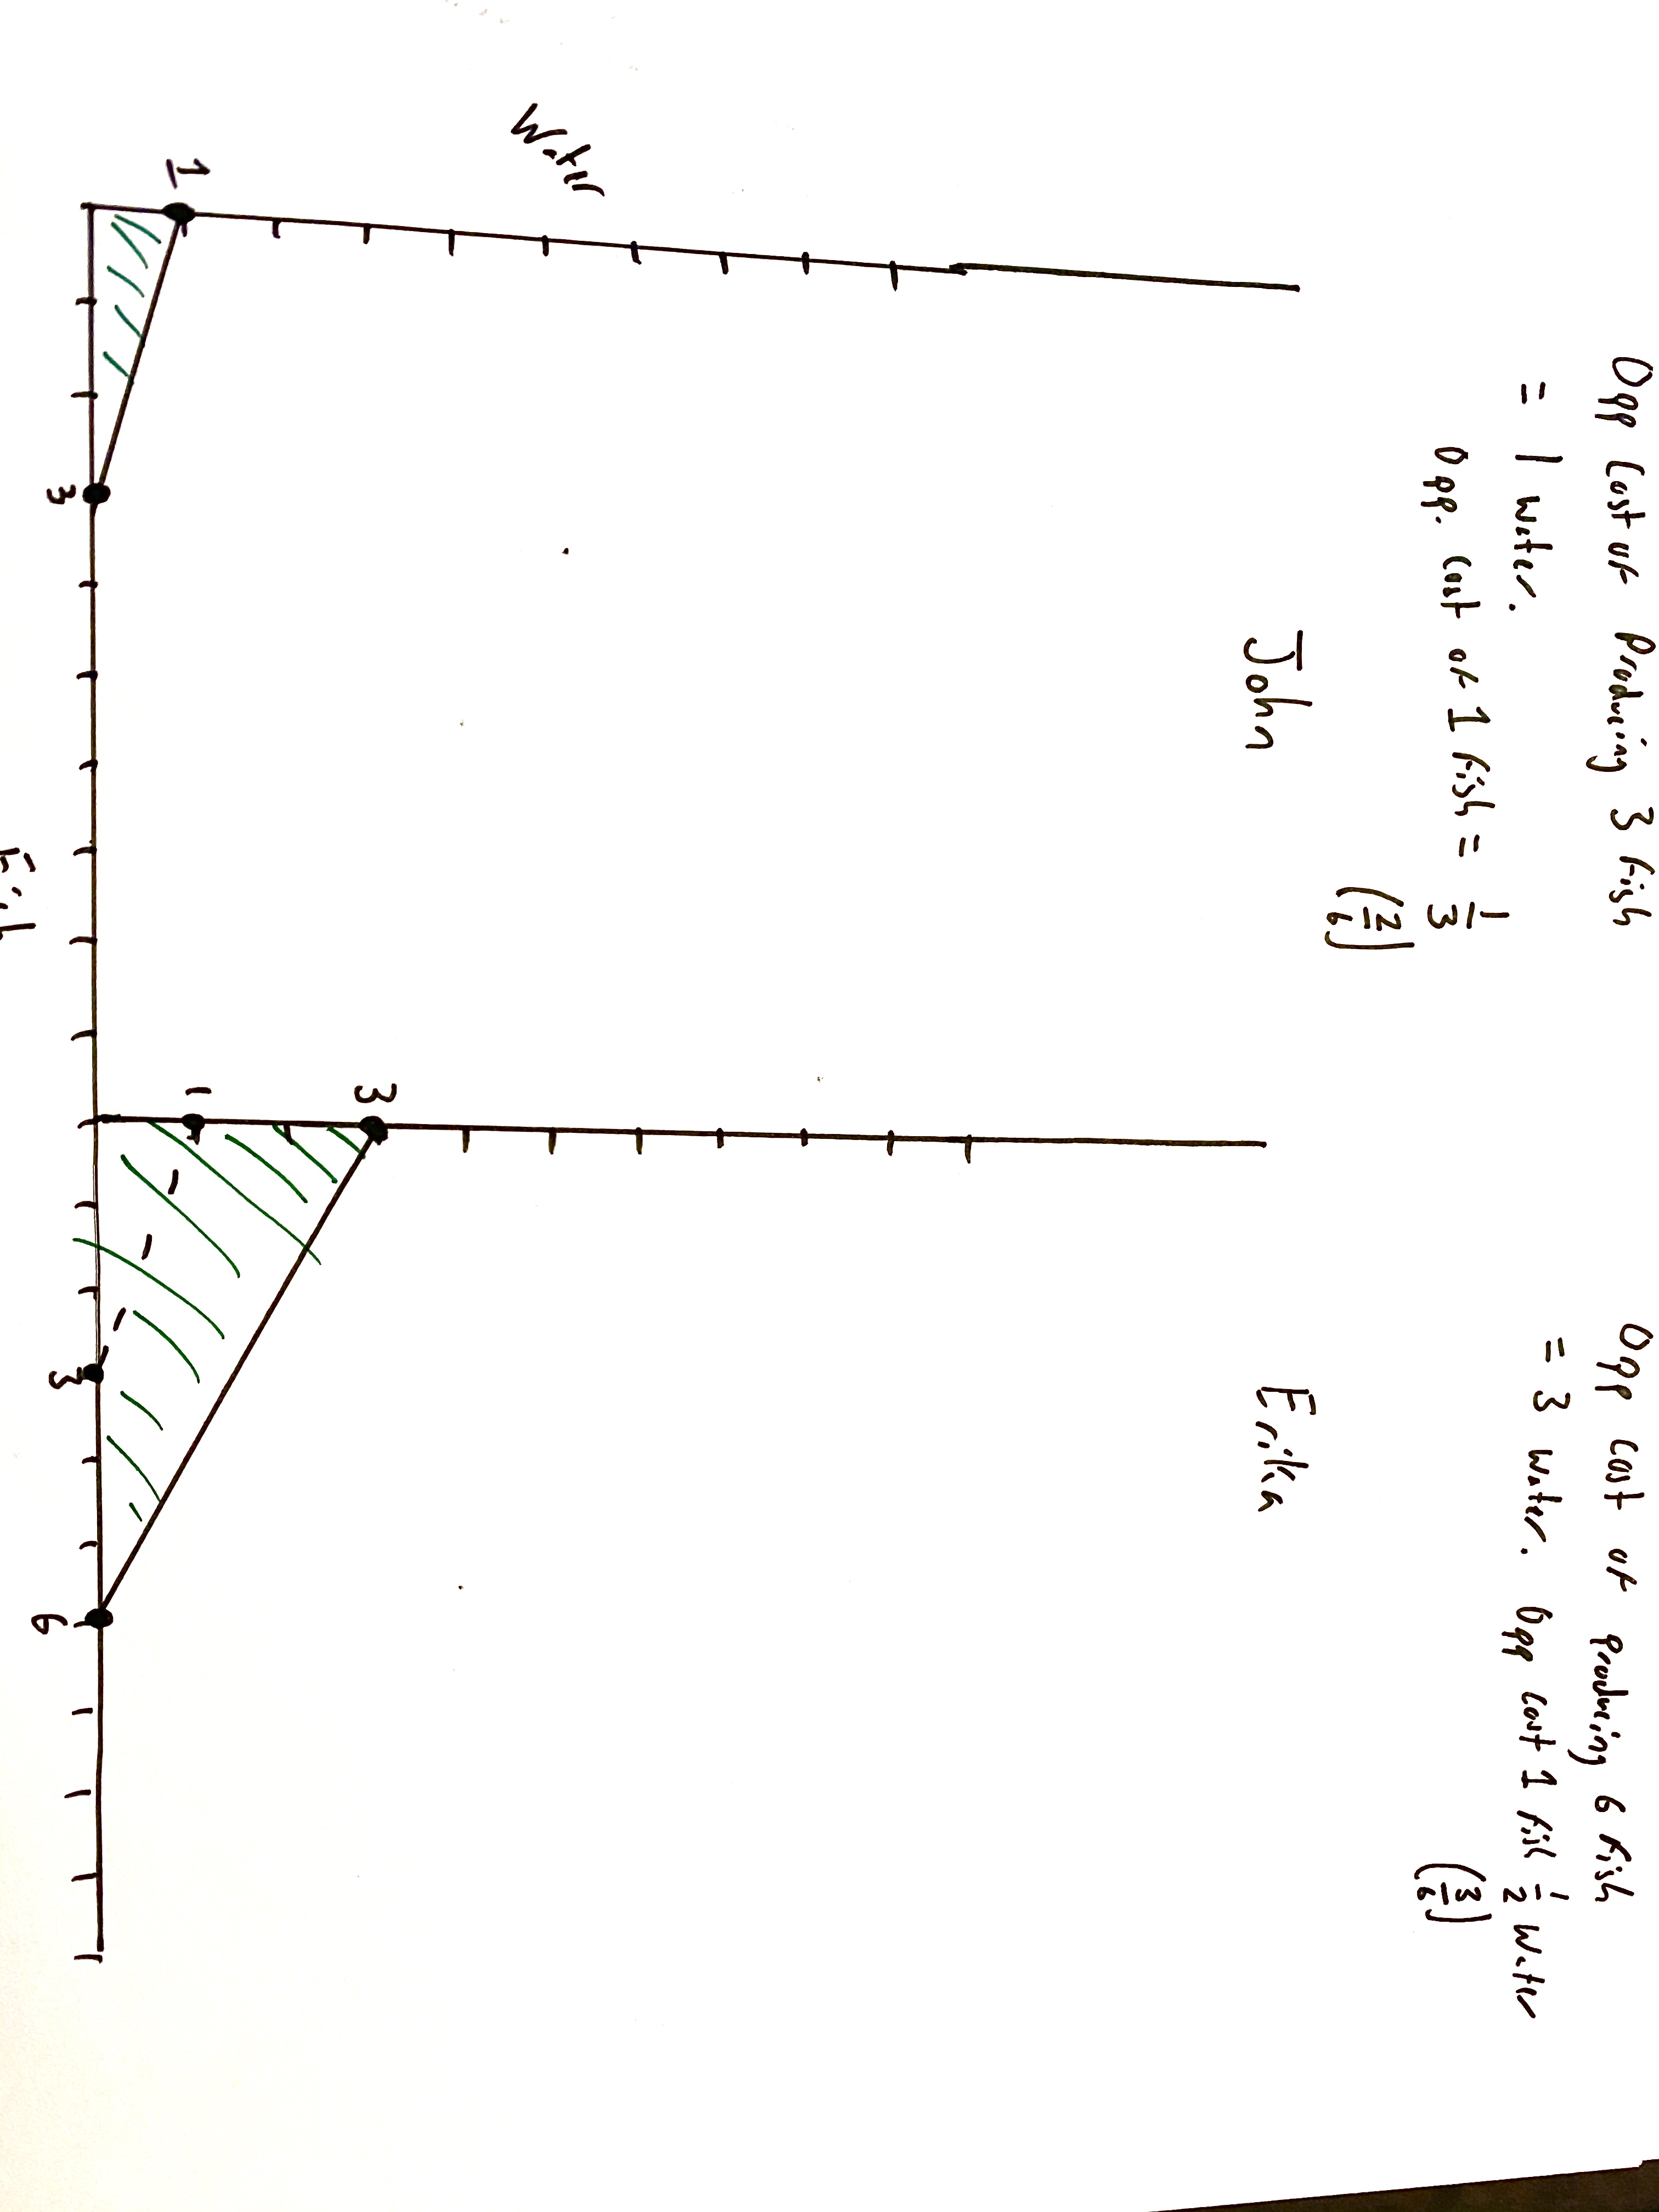 Opp Cost of Producing 3 fish
= 1 water.
Opp. Cost of 1 fish = 1/3
(2/6)
John
Opp Cost of producing 6 fish
= 3 water. Opp Cost 1 fish 1/2 water
(3/6)
Erika
Water
1
3
3
1
3
6
Fish